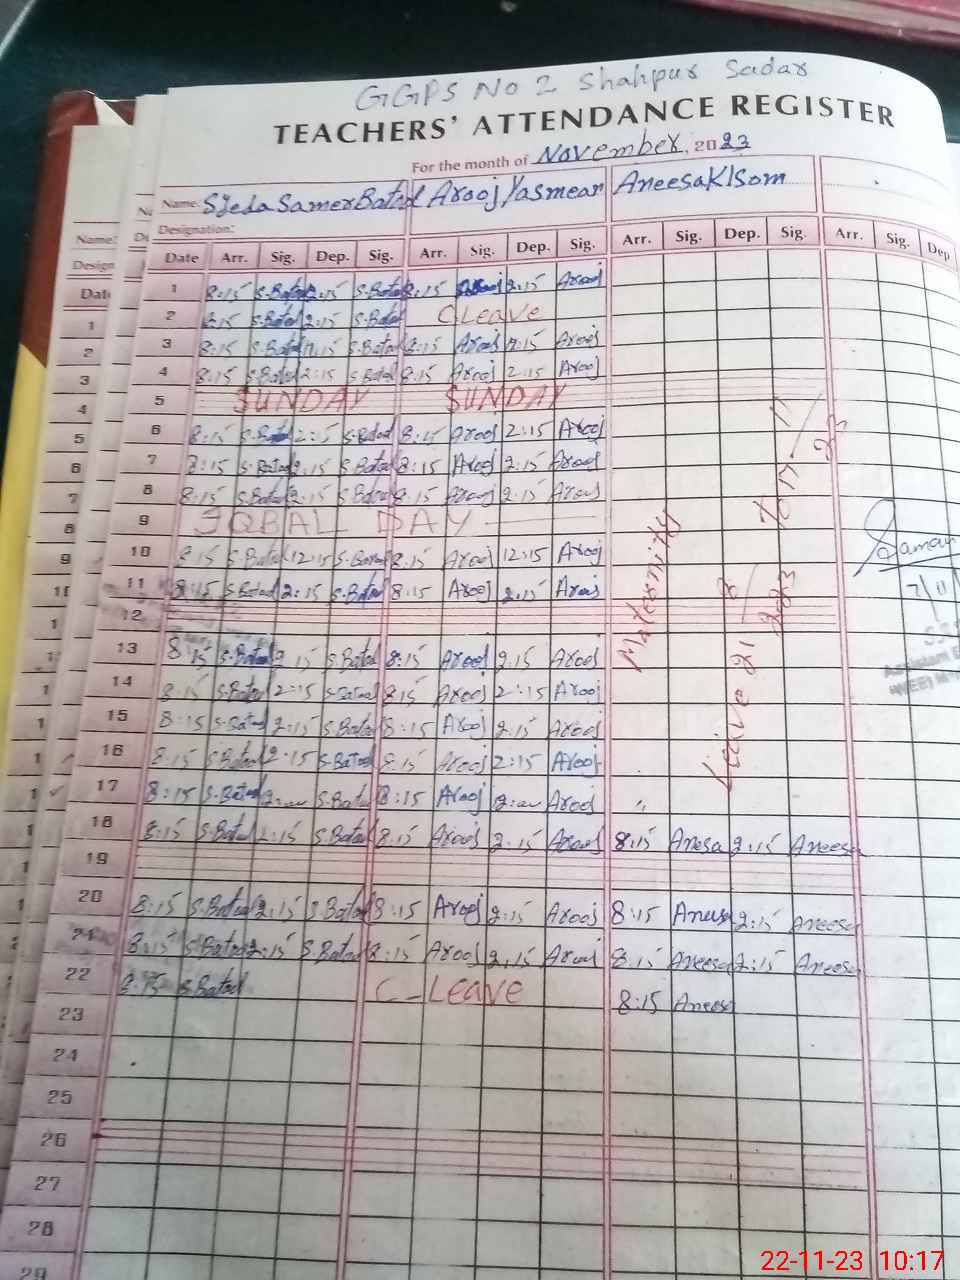 GGPS No 2 Shahpur Sadar
TEACHERS' ATTENDANCE REGISTER
For the month of November, 2023
Name: Syeda Samer Batool Arooj Yasmean Aneesa Klsom
Designation:
Date Arr. Sig. Dep. Sig. Arr. Sig. Dep. Sig. Arr. Sig. Dep. Sig. Arr. Sig. Dep
1 8:15 S.Batool 2:15 S.Batool 8:15 Arooj 2:15 Arooj
2 8:15 S.Batool 2:15 S.Batool C Leave
3 8:15 S.Batool 12:15 S.Batool 8:15 Arooj 12:15 Arooj
4 8:15 S.Batool 2:15 S.Batool 8:15 Arooj 2:15 Arooj
5 SUNDAY SUNDAY
6 8:15 S.Batool 2:15 S.Batool 8:15 Arooj 2:15 Arooj
7 8:15 S.Batool 2:15 S.Batool 8:15 Arooj 2:15 Arooj
8 8:15 S.Batool 2:15 S.Batool 8:15 Arooj 2:15 Arooj
9 IQBAL DAY
10 8:15 S.Batool 12:15 S.Batool 8:15 Arooj 12:15 Arooj
11 8:15 S.Batool 2:15 S.Batool 8:15 Arooj 2:15 Arooj
12
13 8:15 S.Batool 2:15 S.Batool 8:15 Arooj 2:15 Arooj
14 8:15 S.Batool 2:15 S.Batool 8:15 Arooj 2:15 Arooj
15 8:15 S.Batool 2:15 S.Batool 8:15 Arooj 2:15 Arooj
16 8:15 S.Batool 2:15 S.Batool 8:15 Arooj 2:15 Arooj
17 8:15 S.Batool S.Batool 8:15 Arooj Arooj
18 8:15 S.Batool 2:15 S.Batool 8:15 Arooj 2:15 Arooj 8:15 Anesa 2:15 Aneesa
19
20 8:15 S.Batool 2:15 S.Batool 8:15 Arooj 2:15 Arooj 8:15 2:15 Aneesa
21 8:15 S.Batool 2:15 S.Batool 8:15 Arooj 2:15 Arooj 8:15 Aneesa 2:15 Aneesa
22 8:15 S.Batool C-Leave 8:15 Aneesa
23
24
25
26
27
28
29
Maternity
Leave 21
to 17
22-11-23 10:17